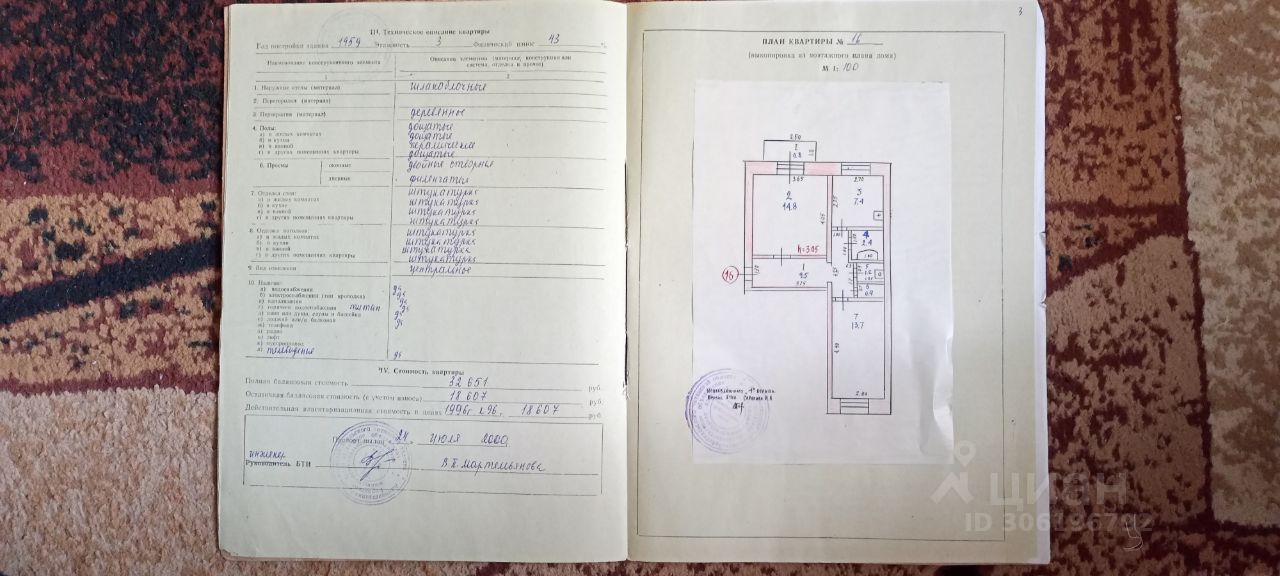 III. Техническое описание квартиры
Год постройки здания 1959 Этажность 3 Физический износ 43 %
Наименование конструктивного элемента
Описание элементов (материал, конструкция или система, отделка и прочее)
1
2
1. Наружные стены (материал) шлакоблочные
2. Перегородки (материал)
3. Перекрытия (материал) деревянные
4. Полы:
а) в жилых комнатах дощатые
б) в кухне дощатые
в) в ванной керамические
г) в других помещениях квартиры дощатые
6. Проемы оконные двойные створные
дверные филенчатые
7. Отделка стен:
а) в жилых комнатах штукатурка
б) в кухне штукатурка
в) в ванной штукатурка
г) в других помещениях квартиры штукатурка
8. Отделка потолков:
а) в жилых комнатах штукатурка
б) в кухне штукатурка
в) в ванной штукатурка
г) в других помещениях квартиры штукатурка
9. Вид отопления центральное
10. Наличие:
а) водоснабжения да
б) электроснабжения (тип проводки) да
в) канализации да
г) горячего водоснабжения титан да
д) ванн или душа, сауны и бассейна да
е) лоджий или/и балконов да
ж) телефона
з) радио
и) лифт
к) мусоропровод
л) телевидения да
IV. Стоимость квартиры
Полная балансовая стоимость 32 651 руб.
Остаточная балансовая стоимость (с учетом износа) 18 607 руб.
Действительная инвентаризационная стоимость в ценах 1996 г. 18 607 руб.
Паспорт выдан 24 июля 2000
инженер
Руководитель БТИ В.П. Мартемьянова
3
ПЛАН КВАРТИРЫ № 16
(выкопировка из поэтажного плана дома)
М 1: 100
2.50
1
0.8
3.65
2.70
2
14.8
3
7.4
4.05
2.75
4
2.4
h=3.05
16
1
9.5
6
0.9
7
13.7
4.90
2.80
циан
ID 306196792